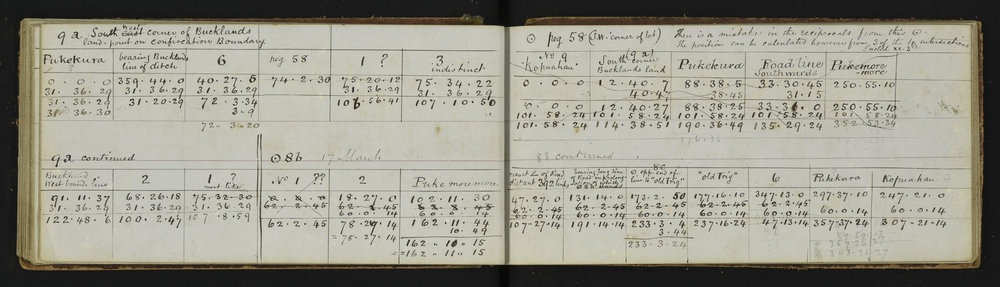 9a South west corner of Bucklands
land - point on confiscation Boundary
Pukekura | bearing Bucklands line of ditch | 6 | peg 58 | 1 ? | 3 indistinct
0 . 0 . 0 | 359 . 44 . 0 | 40 . 27 . 5 | 74 . 2 . 30 | 75 . 20 . 12 | 75 . 34 . 22
31 . 36 . 29 | 31 . 36 . 29 | 31 . 36 . 29 | 31 . 36 . 29 | 31 . 36 . 29
31 . 36 . 29 | 31 . 20 . 29 | 72 . 3 . 34 | 106 . 56 . 41 | 107 . 10 . 50
31 . 36 . 30 | 3 . 9
72 . 3 . 20
9a continued
⊙ 8b 17 March
West bound: line | 2 | 1 ? most like | No 1 ?? | 2 | Puke more more
91 . 11 . 37 | 68 . 26 . 18 | 75 . 32 . 30 | 0 . 0 . 0 | 18 . 27 . 0 | 102 . 11 . 30
31 . 36 . 29 | 31 . 36 . 29 | 31 . 36 . 29 | 62 . 2 . 45 | 62 . 2 . 45
60 . 0 . 14 | 60 . 0 . 14
122 . 48 . 6 | 100 . 2 . 47 | 107 . 8 . 59 | 62 . 2 . 45 | 78 . 29 . 14 | 162 . 11 . 44
= 78 . 27 . 14 | 10 . 49
= 162 " 11 " 15
⊙ peg 58 (S.W. corner of lot)
There is a mistake in the reciprocals from this ⊙
The position can be calculated however from 3 of the 4 intersections
No 9 Kopuahan | (9a) South corner Bucklands land | Pukekura | Road line Southwards | Pukemore - more
0 . 0 . 0 | 12 . 40 . 7 | 88 . 38 . 5 | 33 . 30 . 45 | 250 . 55 . 10
40 . 47 | 38 . 45 | 31 . 15
0 . 0 . 0 | 12 . 40 . 27 | 88 . 38 . 25 | 33 . 31 . 0 | 250 . 55 . 10
101 . 58 . 24 | 101 . 58 . 24 | 101 . 58 . 24 | 101 . 58 . 24 | 101 . 58 . 24
101 . 58 . 24 | 114 . 38 . 51 | 190 . 36 . 49 | 135 . 29 . 24 | 352 . 53 . 34
8b continued
⊙ opp. end of line to "old Trig" | "old Trig" | 6 | Pukekura | Kopuahan
47 . 27 . 0 | 131 . 14 . 0 | 173 . 2 . 50 | 177 . 16 . 10 | 347 . 13 . 0 | 297 . 37 . 10 | 247 . 21 . 0
62 . 2 . 45 | 62 . 2 . 45 | 62 . 2 . 45 | 62 . 2 . 45 | 62 . 2 . 45
60 . 0 . 14 | 60 . 0 . 14 | 60 . 0 . 14 | 60 . 0 . 14 | 60 . 0 . 14 | 60 . 0 . 14 | 60 . 0 . 14
107 . 27 . 14 | 191 . 14 . 14 | 233 . 3 . 4 | 237 . 16 . 24 | 47 . 13 . 14 | 357 . 37 . 24 | 307 . 21 . 14
3 . 44
233 . 3 . 24